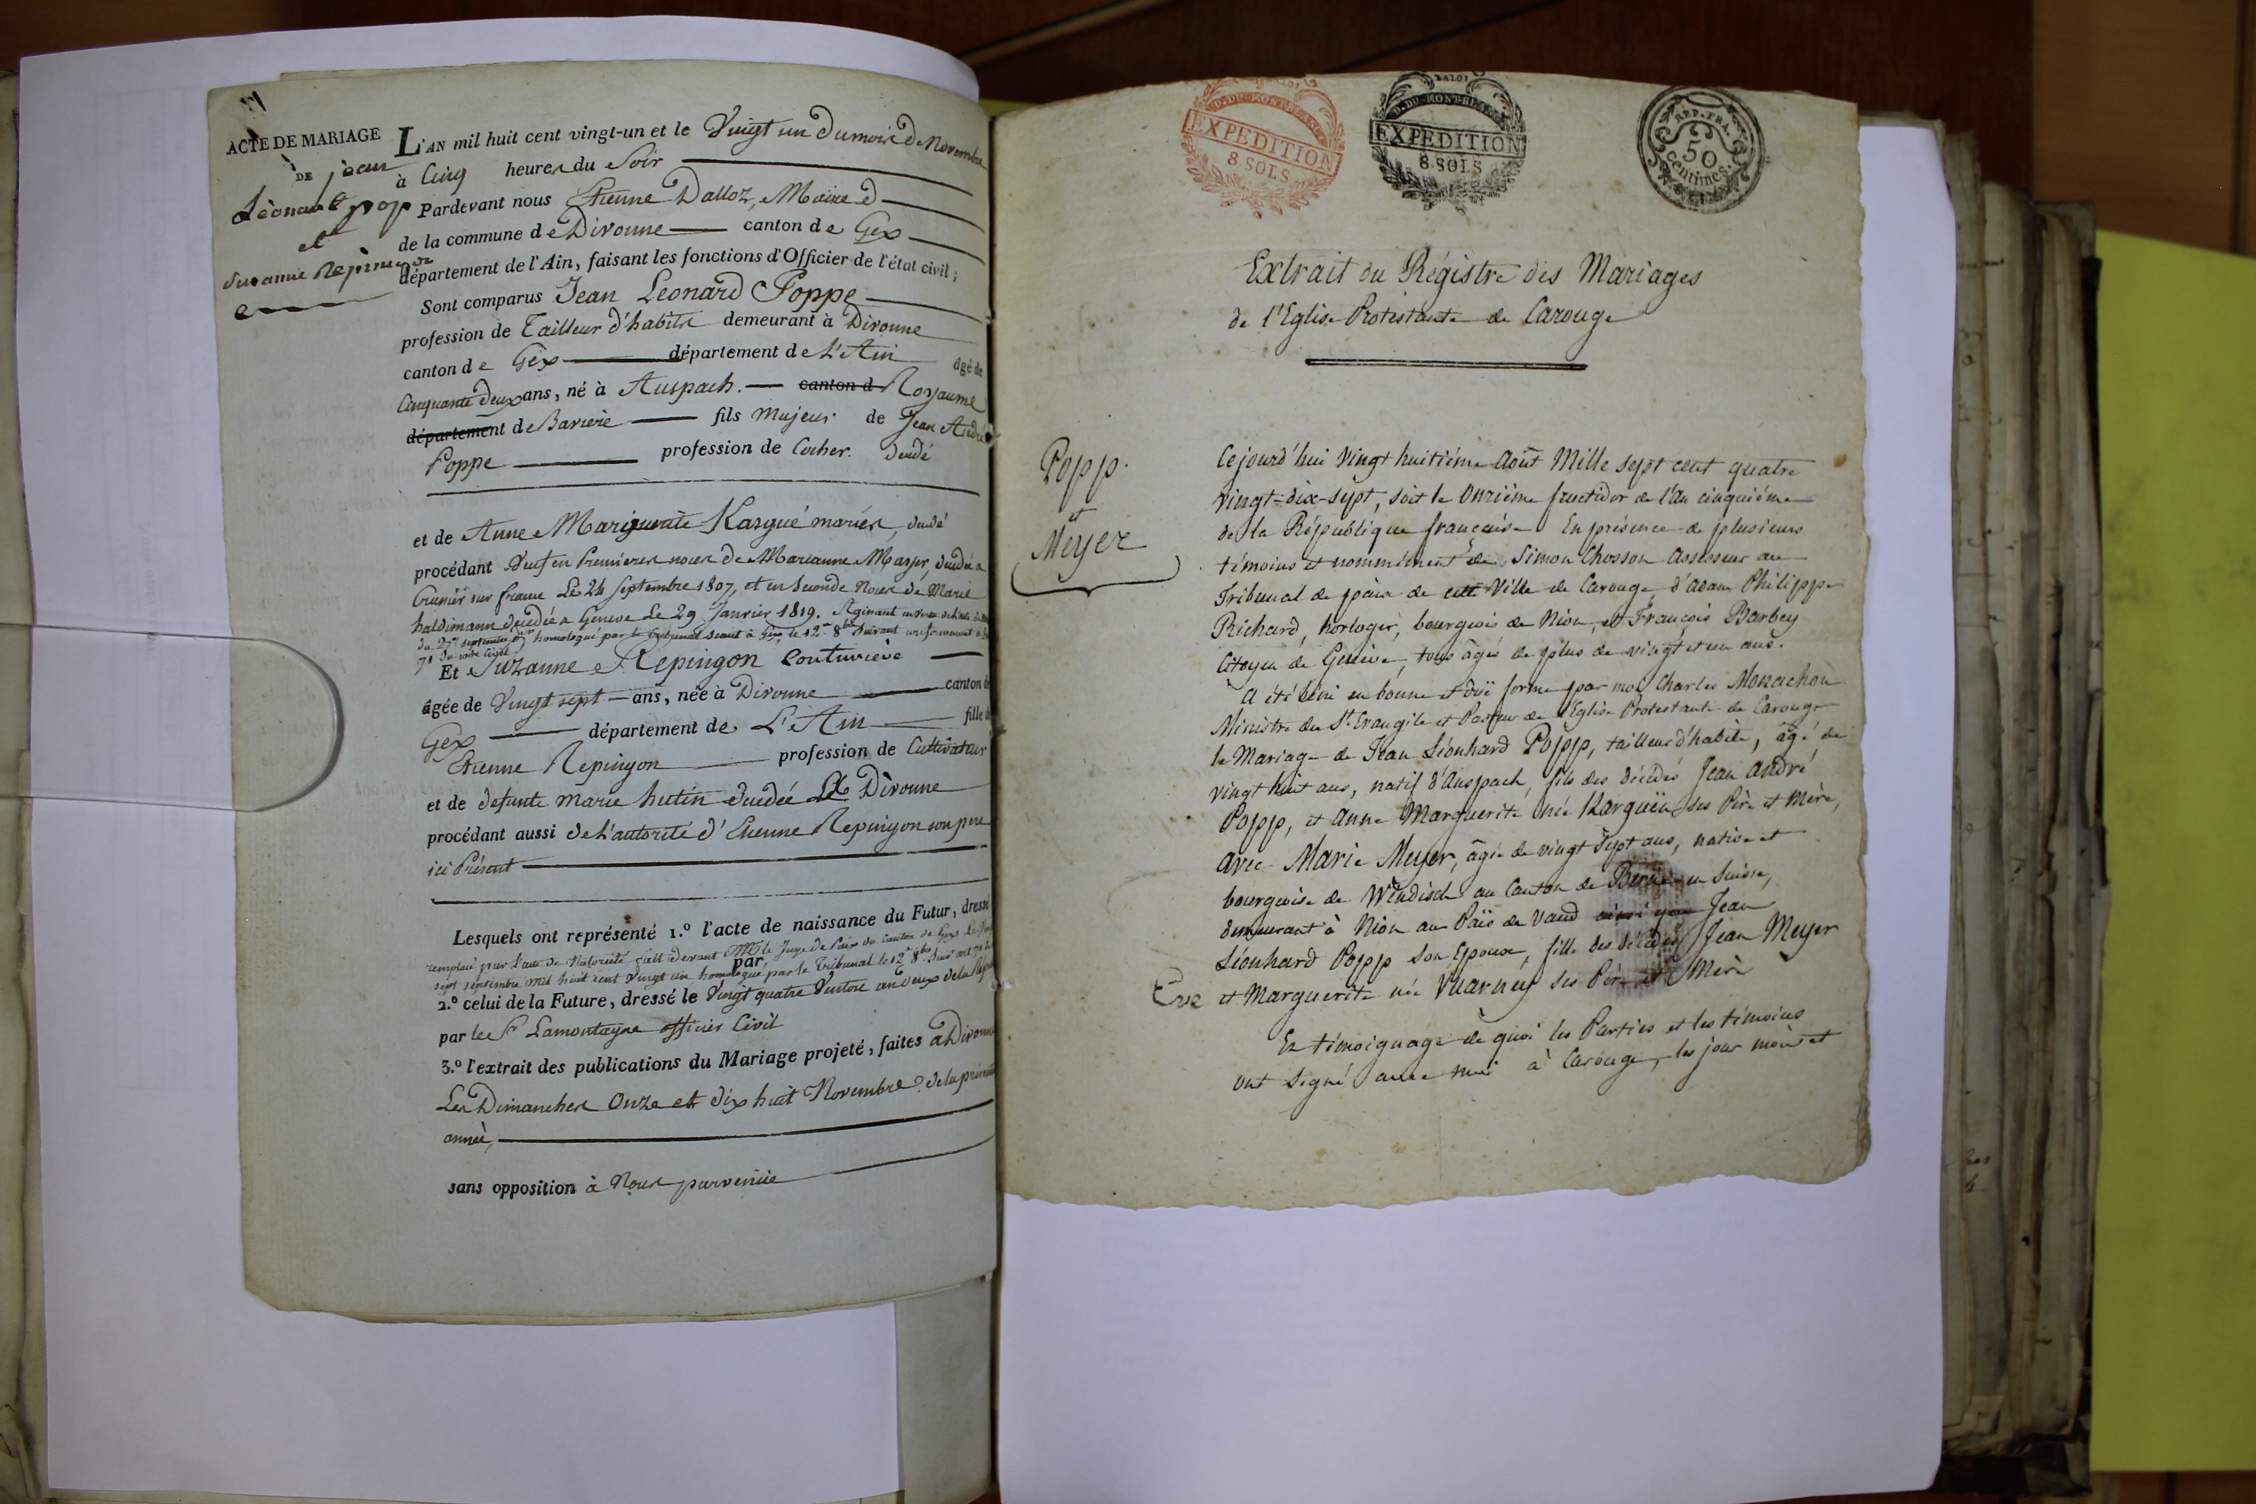 ACTE DE MARIAGE
DE jean
Léonard popp
et
Susanne Repingon
L'AN mil huit cent vingt-un et le Vingt un du mois de Novembre
à Cinq heures du Soir
Pardevant nous Etienne Dalloz, Maire
de la commune de Divonne canton de Gex
département de l'Ain, faisant les fonctions d'Officier de l'état civil ;
Sont comparus Jean Léonard Poppe
profession de Tailleur d'habits demeurant à Divonne
canton de Gex département de L'Ain âgé de
Cinquante deux ans, né à Auspach. canton d Royaume
département de Baviere fils Majeur de Jean André
Poppe profession de Cocher. décédé
et de Anne Marguerite Kargué mariés, décédé
procédant Veuf en Premieres noces de Marianne Mayer, décédée a
sur france Le 24 Septembre 1807, et en Seconde Noces de Marie
haldimann décédée a Geneve Le 29 Janvier 1819.
du 27 septembre homologué par le tribunal séant à Gex le 12 8bre Suivant conformément
71 du code civil
Et Suzanne Repingon Couturiere
âgée de Vingt sept ans, née à Divonne canton de
Gex département de L'Ain fille de
Etienne Repingon profession de Cultivateur
et de defunte marie hutin décédée Divonne
procédant aussi de L'autorité d'Etienne Repingon son pere
ici Présent
Lesquels ont représenté 1.º l'acte de naissance du Futur, dressé
remplacé par l'acte de Notoriété fait devant Mr le Juge de Paix du Canton de Gex Le
par
sept septembre mil huit cent vingt un homologué par le Tribunal le 12 8bre Suivant 71
2.º celui de la Future, dressé le Vingt quatre Ventose an deux de la
par le Sr Lamontagne officier Civil
3.º l'extrait des publications du Mariage projeté, faites a Divonne
Les Dimanches Onze et dix huit Novembre de la présente
année,
sans opposition à Nous parvenüe
D. DU MONT-BLANC
EXPEDITION
8 SOLS
D. DU MONT-BLANC
EXPEDITION
8 SOLS
REP. FRA.
50
centimes.
Extrait du Régistre des Mariages
de l'Eglise Protestante de Carouge
Popp.
et
Meyer
Cejourd'hui Vingt huitiéme Août Mille sept cent quatre
vingt-dix-sept, soit le Onziéme fructidor de l'An cinquiéme
de la République française En présence de plusieurs
témoins et nommément de Simon Chosson Assesseur au
Tribunal de paix de cette Ville de Carouge d'Adam Philippe
Richard, horloger, bourgeois de Nion, et François Barbey
Citoyen de Genève, tous âgés de plus de vingt et un ans.
A été béni en bonne et düe forme par moi Charles Monachon
Ministre du St. Evangile et Pasteur de l'Eglise Protestante de Carouge
le Mariage de Jean Léonhard Popp, tailleur d'habits, âgé de
vingt huit ans, natif d'Anspach, fils des décédés Jean André
Popp, et Anne Marguerite née Karguëu ses Père et Mère,
avec Marie Meyer, âgée de vingt sept ans, native et
bourgeoise de Windisch au Canton de Berne en Suisse,
demeurant à Nion au Païs de Vaud ainsi que Jean
Léonhard Popp son Epoux, fille des décédés Jean Meyer
et Marguerite née Vuarney ses Père et Mère
En témoignage de quoi les Parties et les témoins
ont signé avec moi à Carouge, les jour mois et